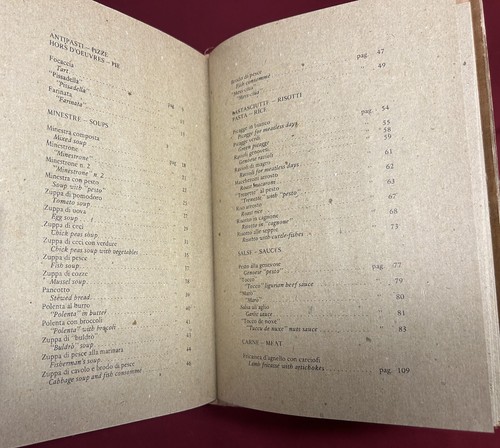 ANTIPASTI – PIZZE
HORS D'OEUVRES – PIE
Focaccia
Tart
"Pissadella"
"Pissadella"
Farinata
"Farinata"
MINESTRE – SOUPS
Minestra composta
Mixed soup
Minestrone
"Minestrone"
Minestrone n. 2
"Minestrone" n. 2
Minestra con pesto
Soup with "pesto"
Zuppa di pomodoro
Tomato soup
Zuppa di uova
Egg soup
Zuppa di ceci
Chick peas soup
Zuppa di ceci con verdure
Chick peas soup with vegetables
Zuppa di pesce
Fish soup
Zuppa di cozze
Mussel soup
Pancotto
Stewed bread
Polenta al burro
"Polenta" in butter
Polenta con broccoli
"Polenta" with broccoli
Zuppa di "buldrò"
"Buldrò" soup
Zuppa di pesce alla marinara 44
Fisherman's soup
Zuppa di cavolo e brodo di pesce 46
Cabbage soup and fish consommé
Brodo di pesce pag. 47
Fish consommé
" 49
MASTASCIUTTE – RISOTTI
PASTA – RICE
Picaggi di bianco pag. 54
Picaggi for meatless days
Picaggi verdi " 55
Green picaggi " 58
Ravioli genovesi " 59
Genoese ravioli
Ravioli di magro " 61
Ravioli for meatless days
Maccheroni arrosto " 63
Roast macaroni
"Trenette" al pesto " 67
"Trenette" with "pesto"
Riso arrosto
Roast rice
Risotto in cagnone " 68
Risotto in "cagnone"
Risotto alle seppie " 73
Risotto with cuttle-fishes
SALSE – SAUCES
Pesto alla genovese pag. 77
Genoese "pesto"
"Tocco" " 79
"Tocco" ligurian beef sauce
"Marò" " 80
"Marò"
Salsa all'aglio " 81
Garlic sauce
"Tocco de noxe" " 83
"Tocco de noxe" nuts sauce
CARNE – MEAT
Fricassea d'agnello con carciofi pag. 109
Lamb fricassé with artichokes